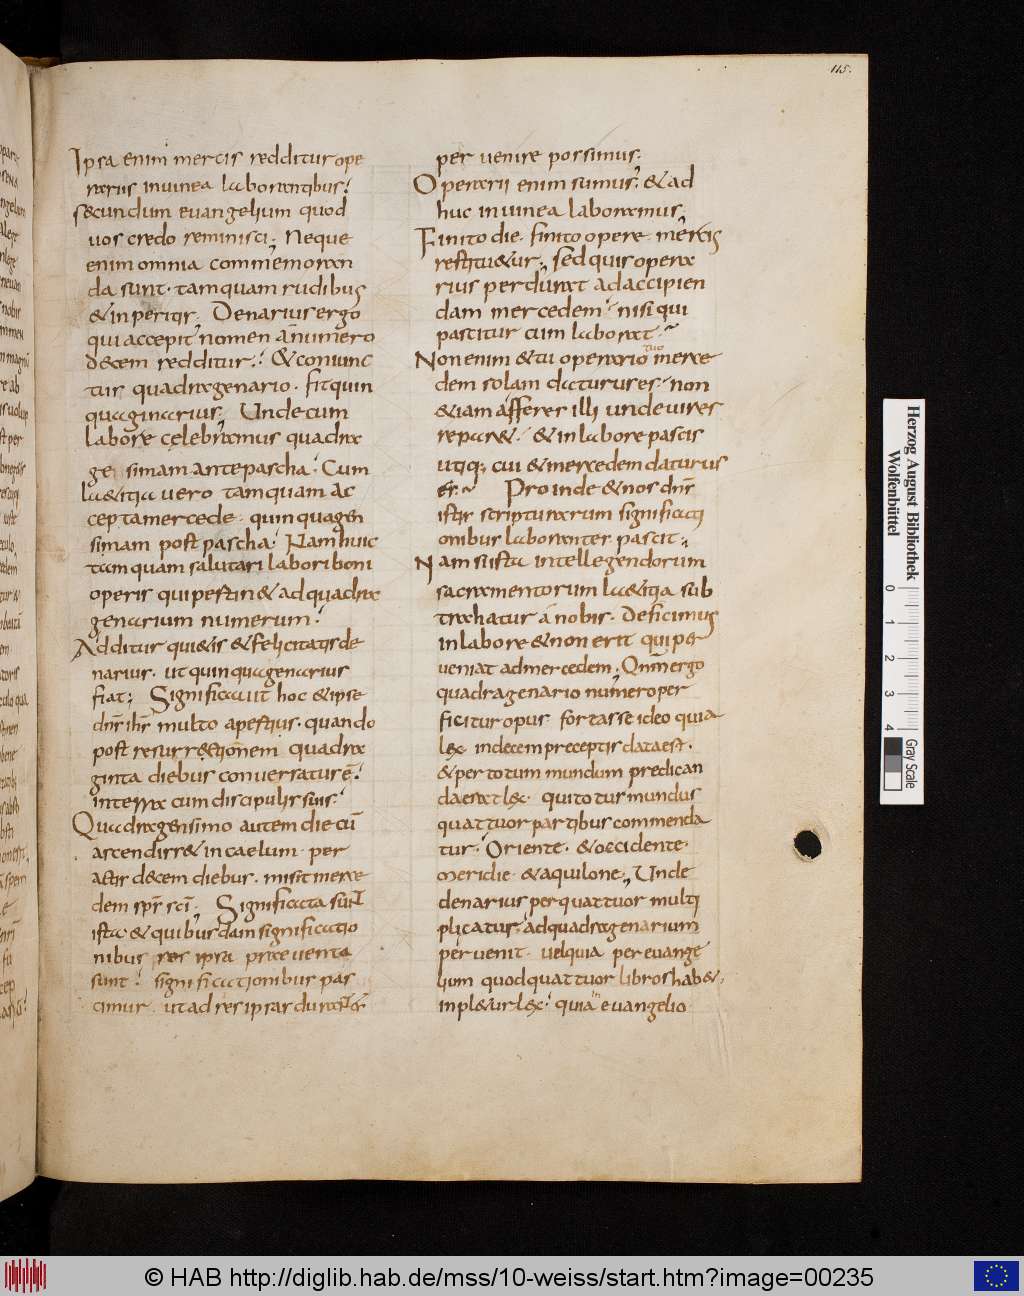 115.
Ipsa enim mercis redditur ope
rariis inuinea laborantibus.
secundum euangelium quod
uos credo reminisci. Neque
enim omnia commemoran
da sunt. tamquam rudibus
& inperitis. Denarius ergo
qui accepit nomen anumero
decem redditur. & coniunc
tus quadragenario. fit quin
quaginarius. Unde cum
labore celebramus quadra
gesimam ante pascha. Cum
laetitia uero tamquam ac
cepta mercede. quinquagen
simam post pascha. Nam huic
tamquam salutari labori boni
operis qui pertin& ad quadra
genarium numerum.
Additur qui&is & felicitatis de
narius. ut quinquagenarius
fiat; Significauit hoc & ipse
dns ihs multo apertius. quando
post resurrectionem quadra
ginta diebus conuersatur ē.
interra cum discipulis suis.
Quadragensimo autem die cū
ascendiss& in caelum. per
actis decem diebus. misit merce
dem sps sci. Significata sunt
ista & quibusdam significatio
nibus res ipsa praeuenta
sunt. significationibus pas
cimur. ut ad res ipsas durantes
peruenire possimus.
Operarii enim sumus. & ad
huc inuinea laboramus.
Finito die. finito opere mercis
restitu&ur. sed quis opera
rius perdurat ad accipien
dam mercedem. nisi qui
pascitur cum laborat.
Non enim & tu operario tuo merce
dem solam daturus es. non
&iam afferes illi unde uires
repar&. & in labore pascis
utiq; cui & mercedem daturus
es. Proinde & nos dns
istis scripturarum significati
onibus laboranter pascit.
Nam si ista intellegendorum
sacramentorum laetitia sub
trahatur a nobis. Deficimus
in labore & non erit qui per
ueniat ad mercedem. Qnm ergo
quadragenario numero per
ficitur opus fortasse ideo quia
lex in decem preceptis data est.
& per totum mundum predican
da erat lex. qui totus mundus
quattuor partibus commenda
tur. Oriente. & occidente.
meridie. & aquilone. Unde
denarius per quattuor multi
plicatus. ad quadragenarium
peruenit. uel quia per euange
lium quod quattuor libros hab&.
inpl&ur lex. quia in euangelio
Herzog August Bibliothek
Wolfenbüttel
0 1 2 3 4
Gray Scale
© HAB http://diglib.hab.de/mss/10-weiss/start.htm?image=00235